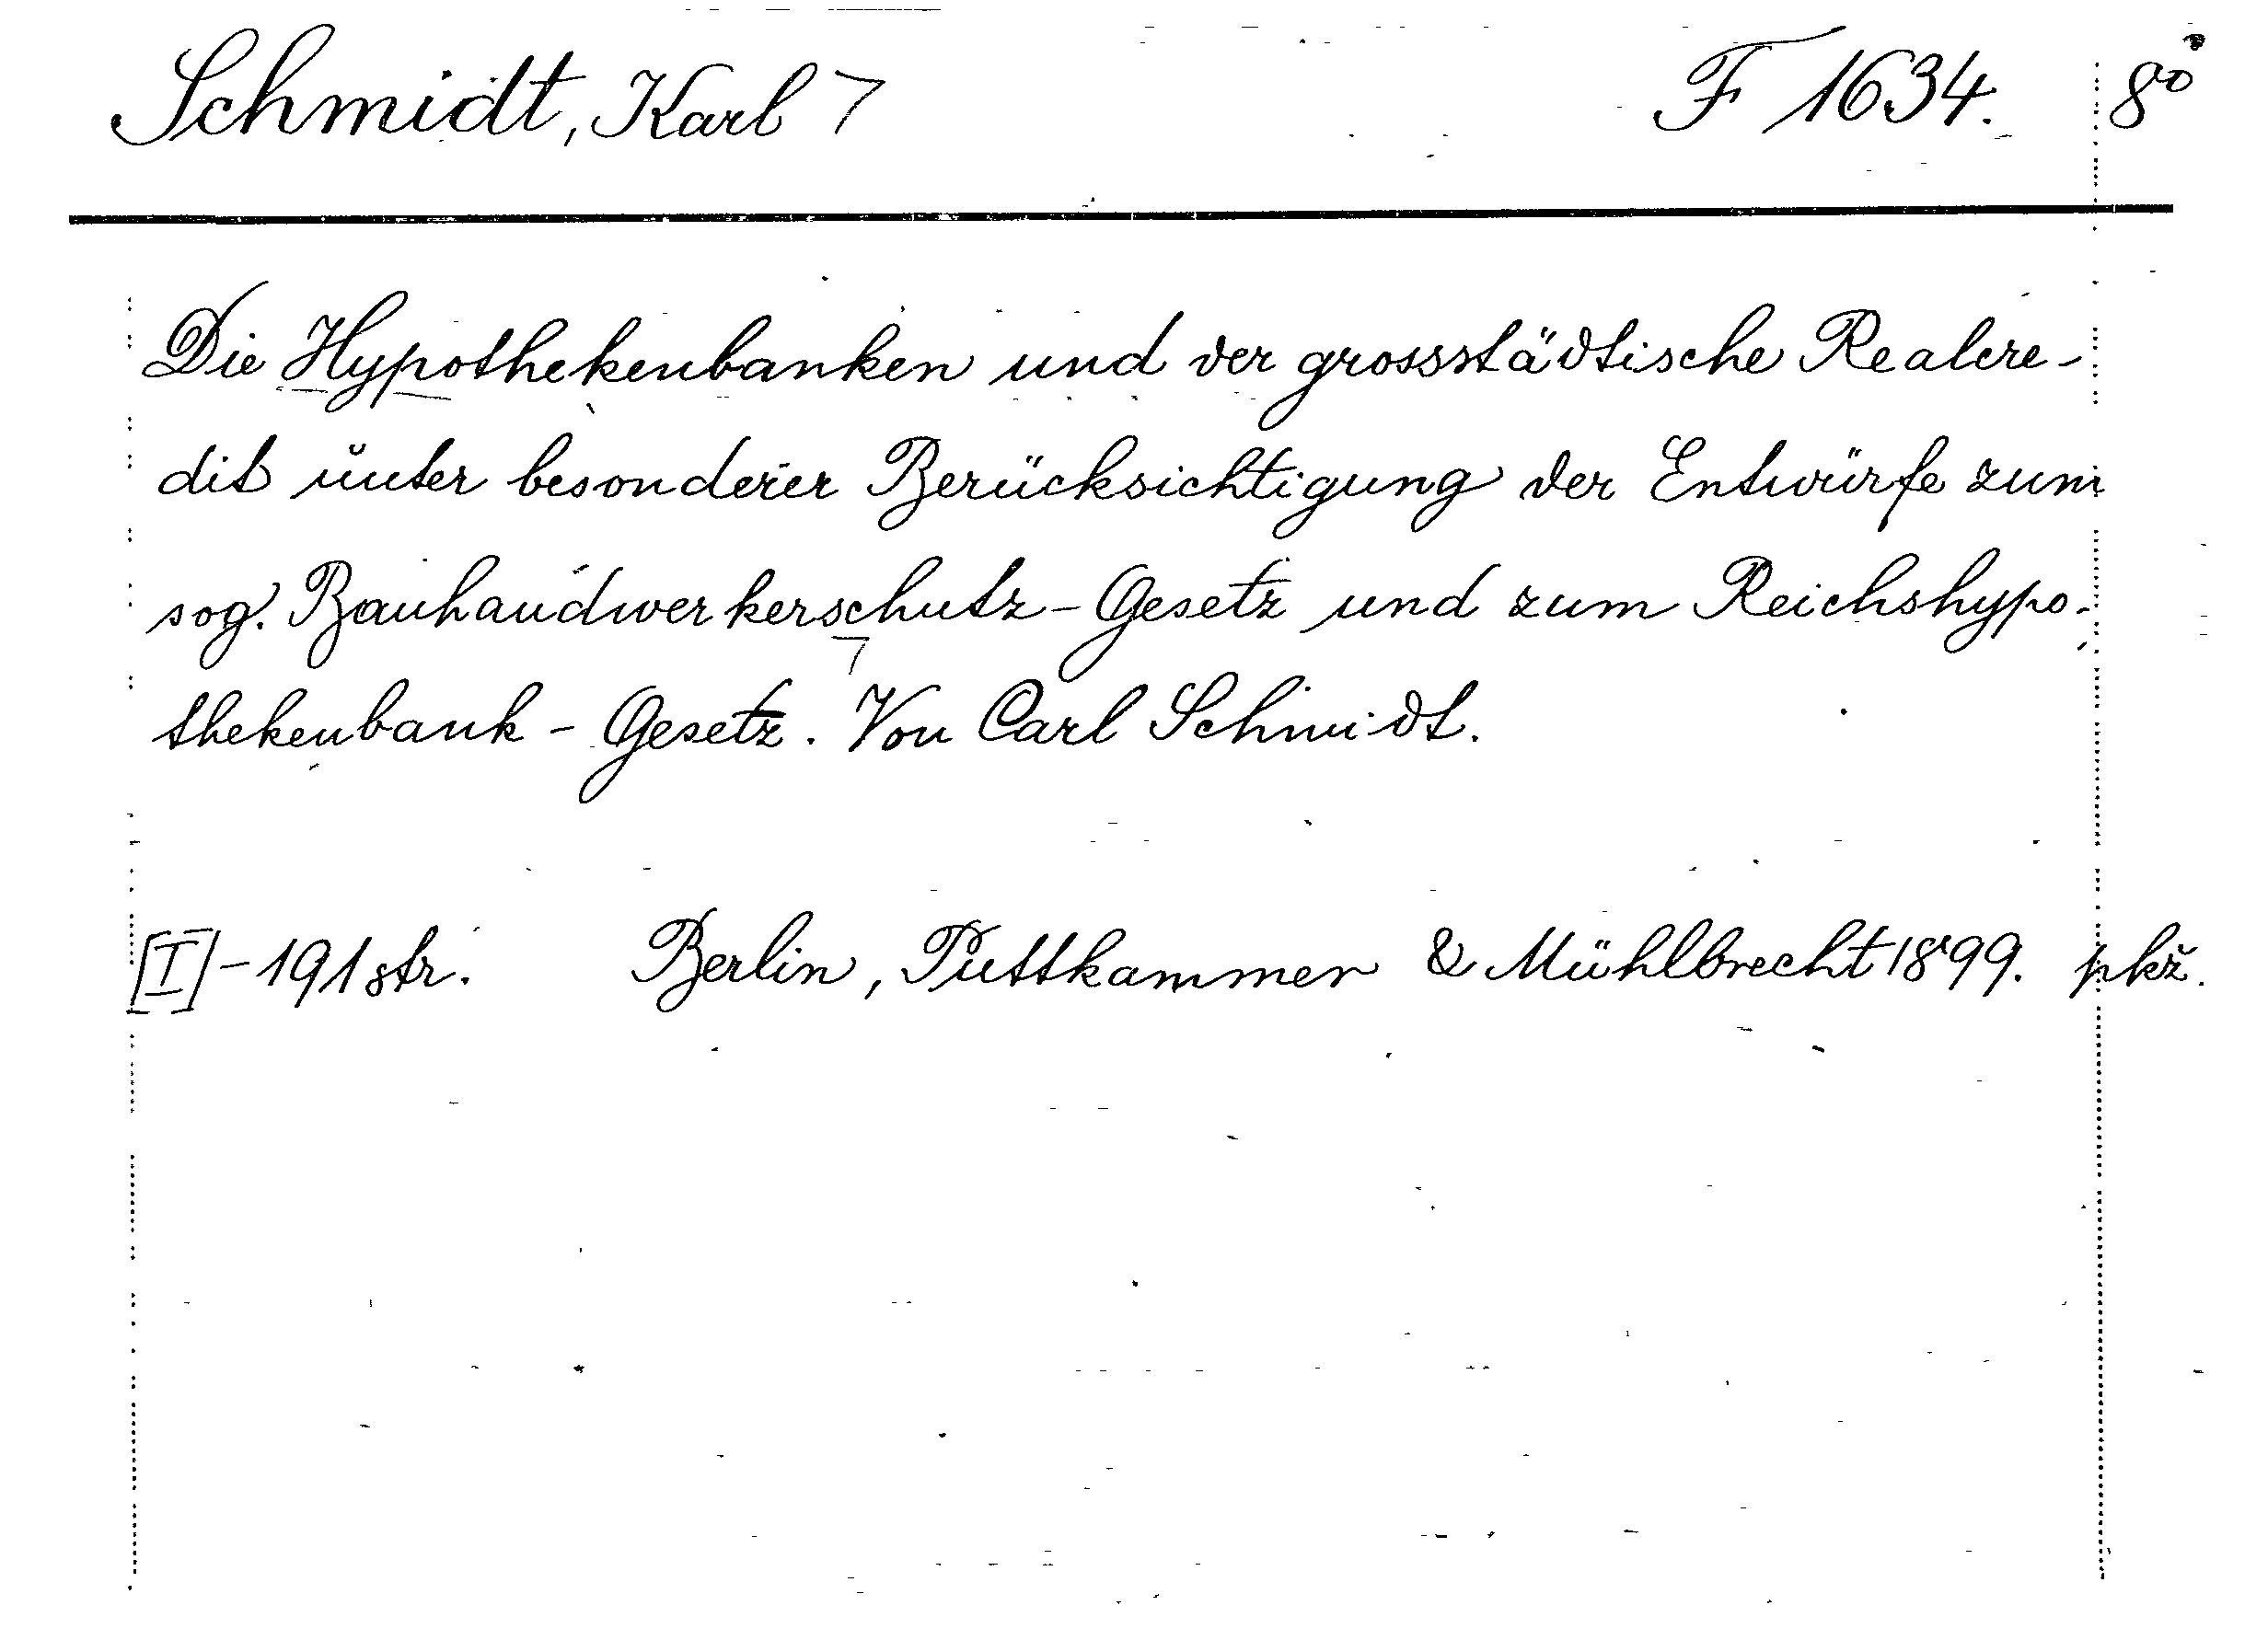 Schmidt, Karl 7 F 1634. 8°
Die Hypothekenbanken und der grossstädtische Realcre-
dit unter besonderer Berücksichtigung der Entwürfe zum
sog. Bauhandwerkerschutz-Gesetz und zum Reichshypo-
7
thekenbank-Gesetz. Von Carl Schmidt.
[I]-191 str. Berlin, Puttkammer & Mühlbrecht 1899. pkž.